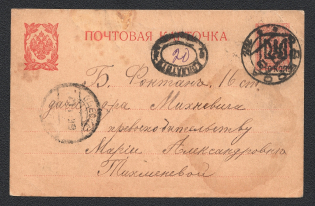 ПОЧТОВАЯ КАРТОЧКА
20
Б. Фонтанъ, 16 ст.
дача д-ра Махневича
Превосходительству
Маріи Александровнѣ
Тихменевой